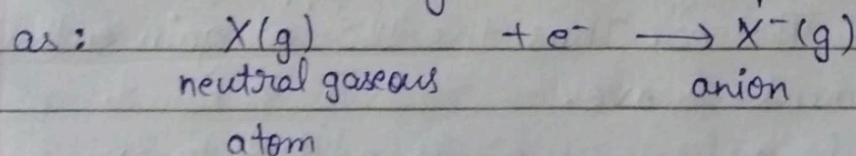 as : X(g) + e⁻ ⟶ X⁻(g)
neutral gaseous anion
atom